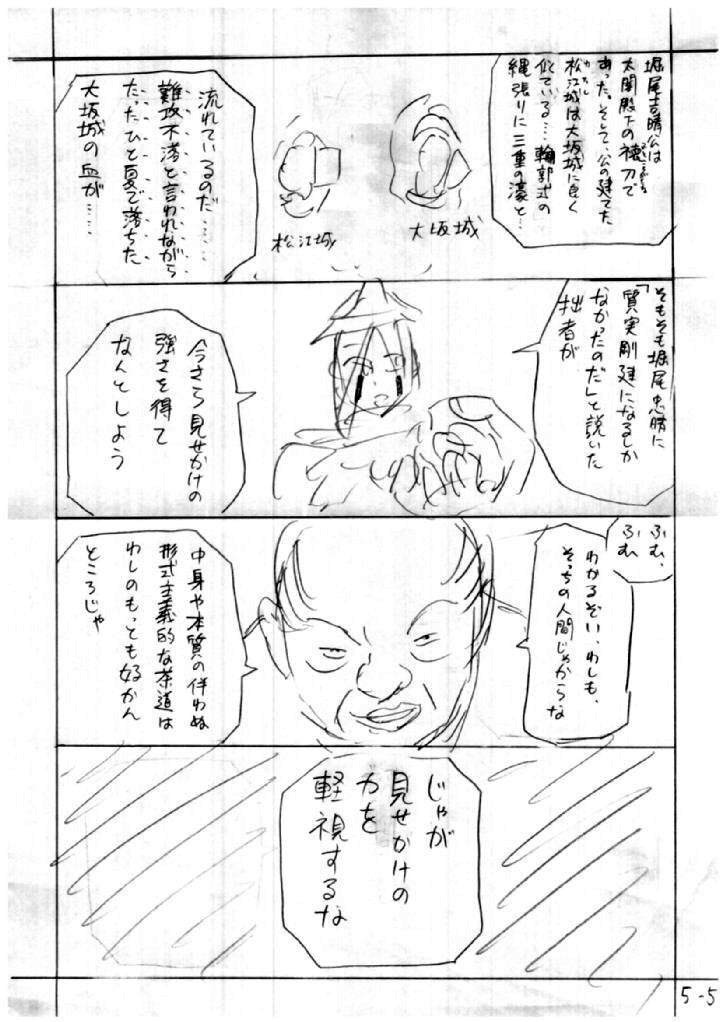 堀尾吉晴公は
太閤殿下の懐刀で
あった。そして、公の建てた
わたし
松江城は大坂城に良く
似ている…輪郭式の
縄張りに三重の濠と…
大坂城
松江城
流れているのだ……
難攻不落と言われながら
たったひと夏で落ちた
大坂城の血が……
そもそも堀尾忠晴に
「質実剛健になるしか
なかったのだ」と説いた
拙者が
今さら見せかけの
強さを得て
なんとしよう
ふむ、
ふむ
わかるぞい、わしも、
そっちの人間じゃからな
中身や本質の伴わぬ
形式主義的な茶道は
わしのもっとも好かん
ところじゃ
じゃが
見せかけの
力を
軽視するな
5-5